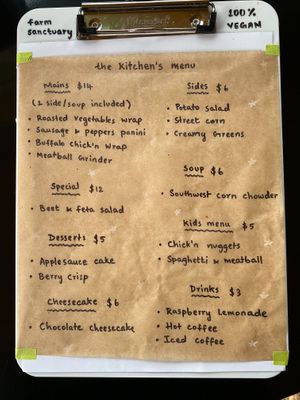 farm
sanctuary
100%
VEGAN
the Kitchen's menu
Mains $14
(1 side/soup included)
• Roasted Vegetables Wrap
• Sausage & peppers panini
• Buffalo chick'n wrap
• Meatball Grinder
Special $12
• Beet & feta salad
Desserts $5
• Applesauce cake
• Berry Crisp
Cheesecake $6
• Chocolate cheesecake
Sides $6
• Potato salad
• Street corn
• Creamy Greens
Soup $6
• Southwest corn chowder
Kids menu $5
• Chick'n nuggets
• Spaghetti & meatball
Drinks $3
• Raspberry Lemonade
• Hot coffee
• Iced coffee